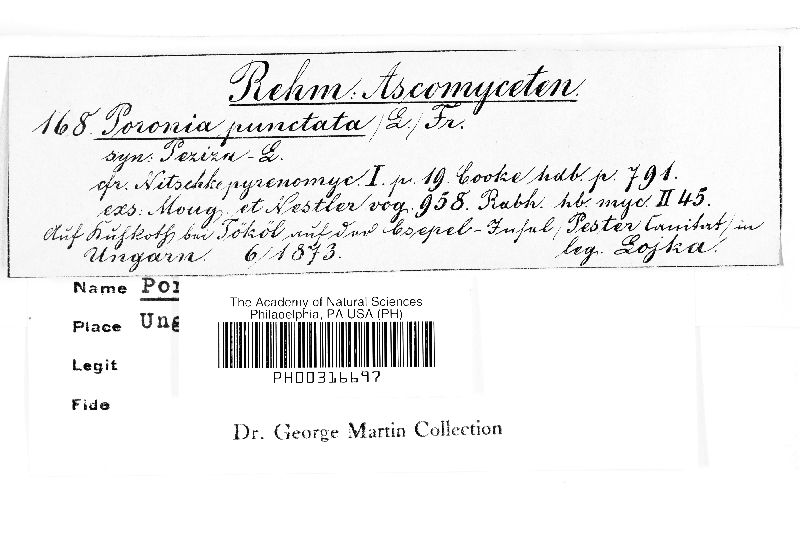 Rehm: Ascomyceten.
168. Poronia punctata /L./ Fr.
syn: Peziza - L.
cfr. Nitschke pyrenomyc. I. p. 19. Cooke hdb. p. 791.
exs: Moug. et Nestler vog. 958. Rabh. hb. myc. II 45.
Auf Kuhkoth bei Tököl auf der Csepel-Insel /Pester Comitat/ in
Ungarn. 6/1873. leg. Lojka.
Name Por
Place Ung
Legit
Fide
The Academy of Natural Sciences
Philadelphia, PA USA (PH)
PH00316697
Dr. George Martin Collection